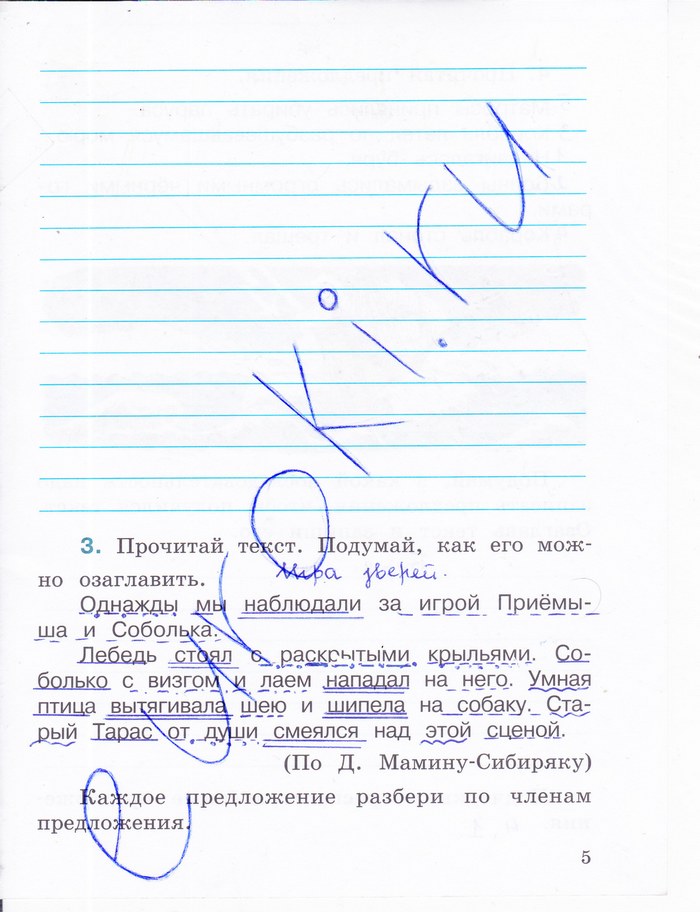 3. Прочитай текст. Подумай, как его мож-
но озаглавить. Игра зверей.
Однажды мы наблюдали за игрой Приёмы-
ша и Соболька.
Лебедь стоял с раскрытыми крыльями. Со-
болько с визгом и лаем нападал на него. Умная
птица вытягивала шею и шипела на собаку. Ста-
рый Тарас от души смеялся над этой сценой.
(По Д. Мамину-Сибиряку)
Каждое предложение разбери по членам
предложения.
5